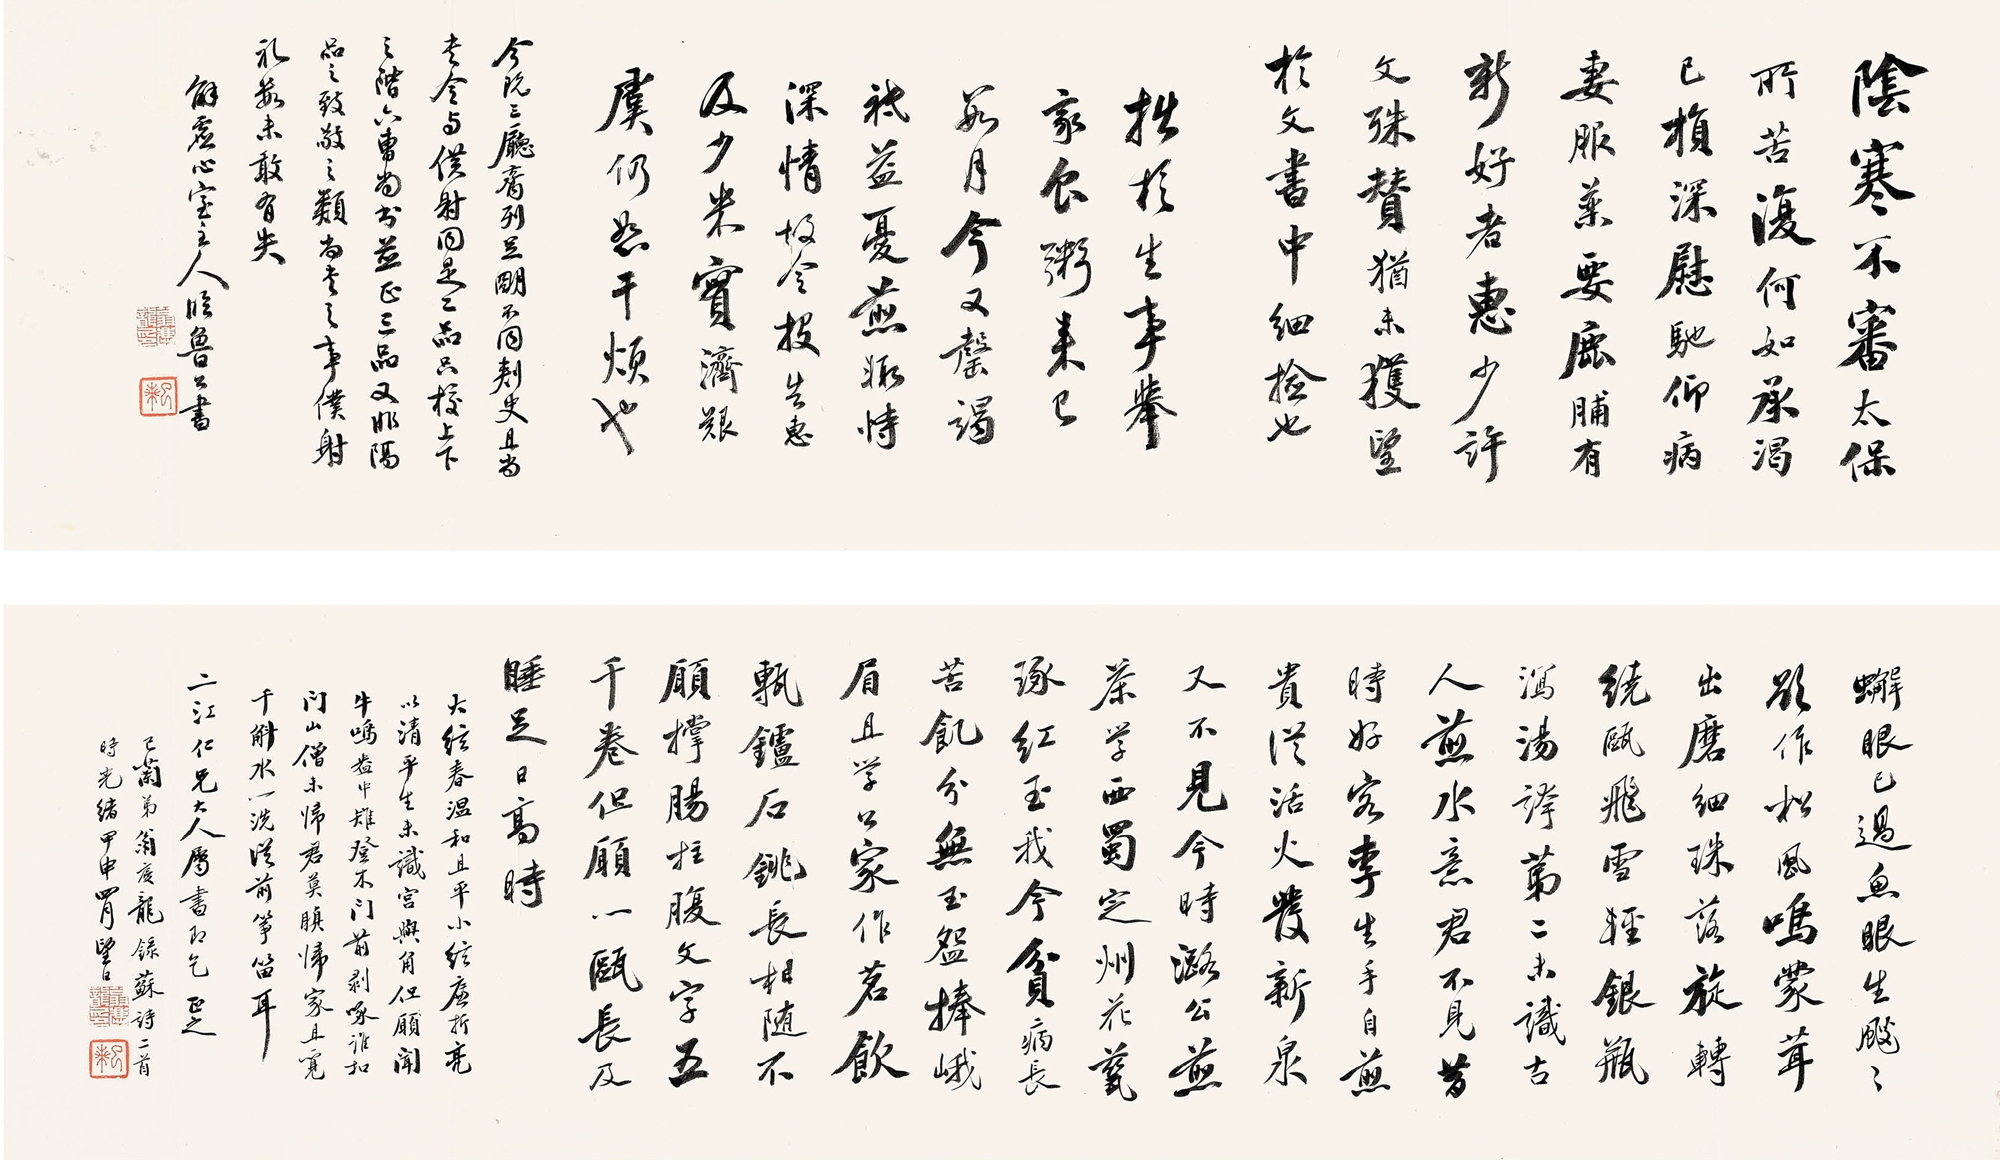 陰寒不審太保
所苦復何如承渴
已損深慰馳仰病
妻服藥要鹿脯有
新好者惠少許
文殊贊猶未獲望
於文書中細檢也
拙於生事舉
家食粥來已
數月今又罄竭
祗益憂煎輒恃
深情故令投告惠
及少米實濟艱
虞仍恕干煩也
今既三廳齊列足明不同刺史且尚
書令与僕射同是二品只校上下
之階六曹尚書並正三品又非隔
品之致敬之類尚書之事僕射
礼數未敢有失
解虛心室主人臨魯公書
蟹眼已過魚眼生颼〻
欲作松風鳴蒙茸
出磨細珠落旋轉
繞甌飛雪輕銀瓶
瀉湯誇第二未識古
人煎水意君不見昔
時好客李生手自煎
貴從活火發新泉
又不見今時潞公煎
茶學西蜀定州花瓷
琢紅玉我今貧病長
苦飢分無玉盌捧峨
眉且學公家作茗飲
甎鑪石銚長相隨不
願撐腸拄腹文字五
千卷但願一甌長及
睡足日高時
大絃春溫和且平小絃廉折亮
以清平生未識宮與角但願聞
牛鳴盎中雉登木門前剝啄誰扣
门山僧未歸君莫瞋歸家且覓
千斛水一洗從前箏笛耳
二江仁兄大人屬書即乞正之
已蘭弟翁慶龍錄蘇詩二首
時光緒甲申四月望日